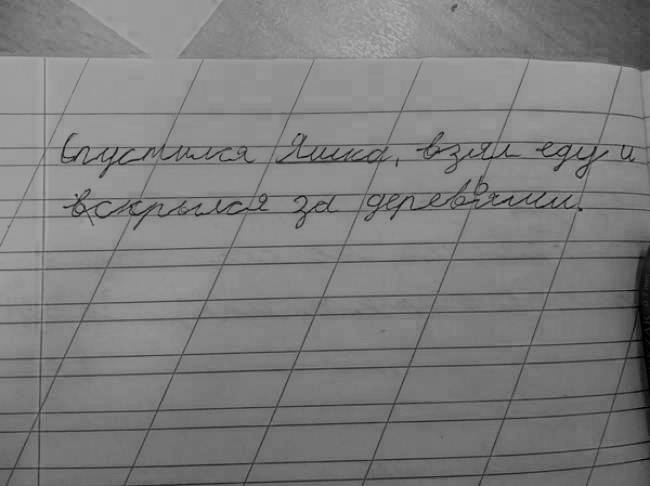 Спустился Яшка, взял еду и
скрылся за деревьями.